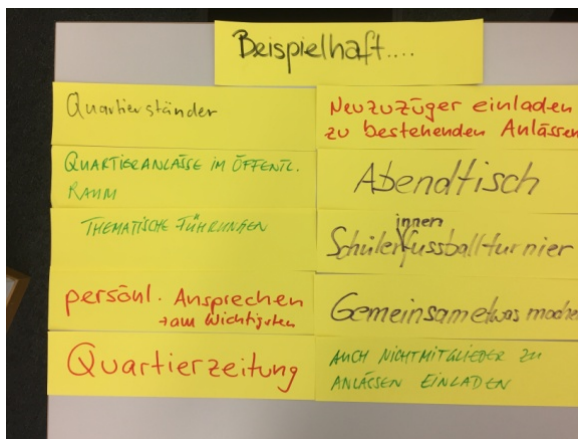 Beispielhaft....
Quartierständer
QUARTIERANLÄSSE IM ÖFFENTL.
RAUM
THEMATISCHE FÜHRUNGEN
persönl. Ansprechen
→ am Wichtigsten
Quartierzeitung
Neuzuzüger einladen
zu bestehenden Anlässen
Abendtisch
innen
Schülerfussballturnier
Gemeinsam etwas machen
AUCH NICHTMITGLIEDER ZU
ANLÄSSEN EINLADEN